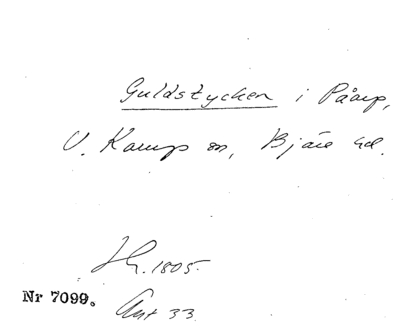 Guldstycken i Påarp,
V. Karup sn, Bjäre hd.
Sk. 1805.
Nr 7099.
Ant 33